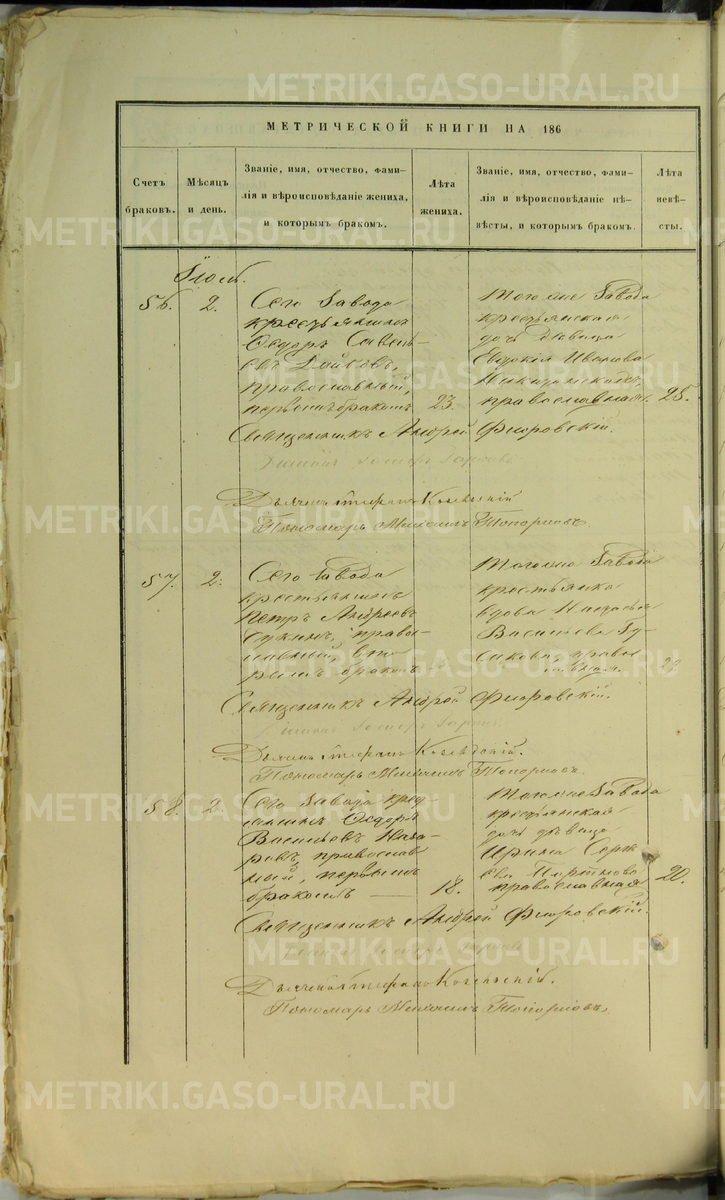 METRIKI.GASO-URAL.RU
МЕТРИЧЕСКОЙ КНИГИ НА 186
Счетъ браковъ.
Мѣсяцъ и день.
Званіе, имя, отчество, фами-
лія и вѣроисповѣданіе жениха,
и которымъ бракомъ.
Лѣта жениха.
Званіе, имя, отчество, фами-
лія и вѣроисповѣданіе не-
вѣсты, и которымъ бракомъ.
Лѣта невѣ-
сты.
56. 2.
Сего Завода
крестьянинъ
Ѳедоръ Савель-
евъ
православный,
первымъ бракомъ 23.
Тогоже Завода
крестьянская
дочь девица
Евдокія Иванова
православная. 25.
Священникъ Андрей Флоровскій.
Дьячекъ Стефанъ
Пономарь Михаилъ Топорковъ.
57. 2.
Сего Завода
крестьянинъ
Петръ Андреевъ
право-
славный, вто
рымъ бракомъ
Тогоже Завода
крестьянка
вдова Настасья
Васильева Гу-
сикова, право
славная.
Священникъ Андрей Флоровскій.
Дьячекъ Стефанъ
Пономарь Михаилъ Топорковъ.
58. 2.
Сего Завода крес
ьянинъ Ѳедоръ
Васильевъ Наза-
ровъ, православ
ный, первымъ
бракомъ 18.
Тогоже Завода
крестьянская
дочь девица
Ирина
православная 20.
Священникъ Андрей Флоровскій.
Дьячекъ Стефанъ
Пономарь Михаилъ Топорковъ.